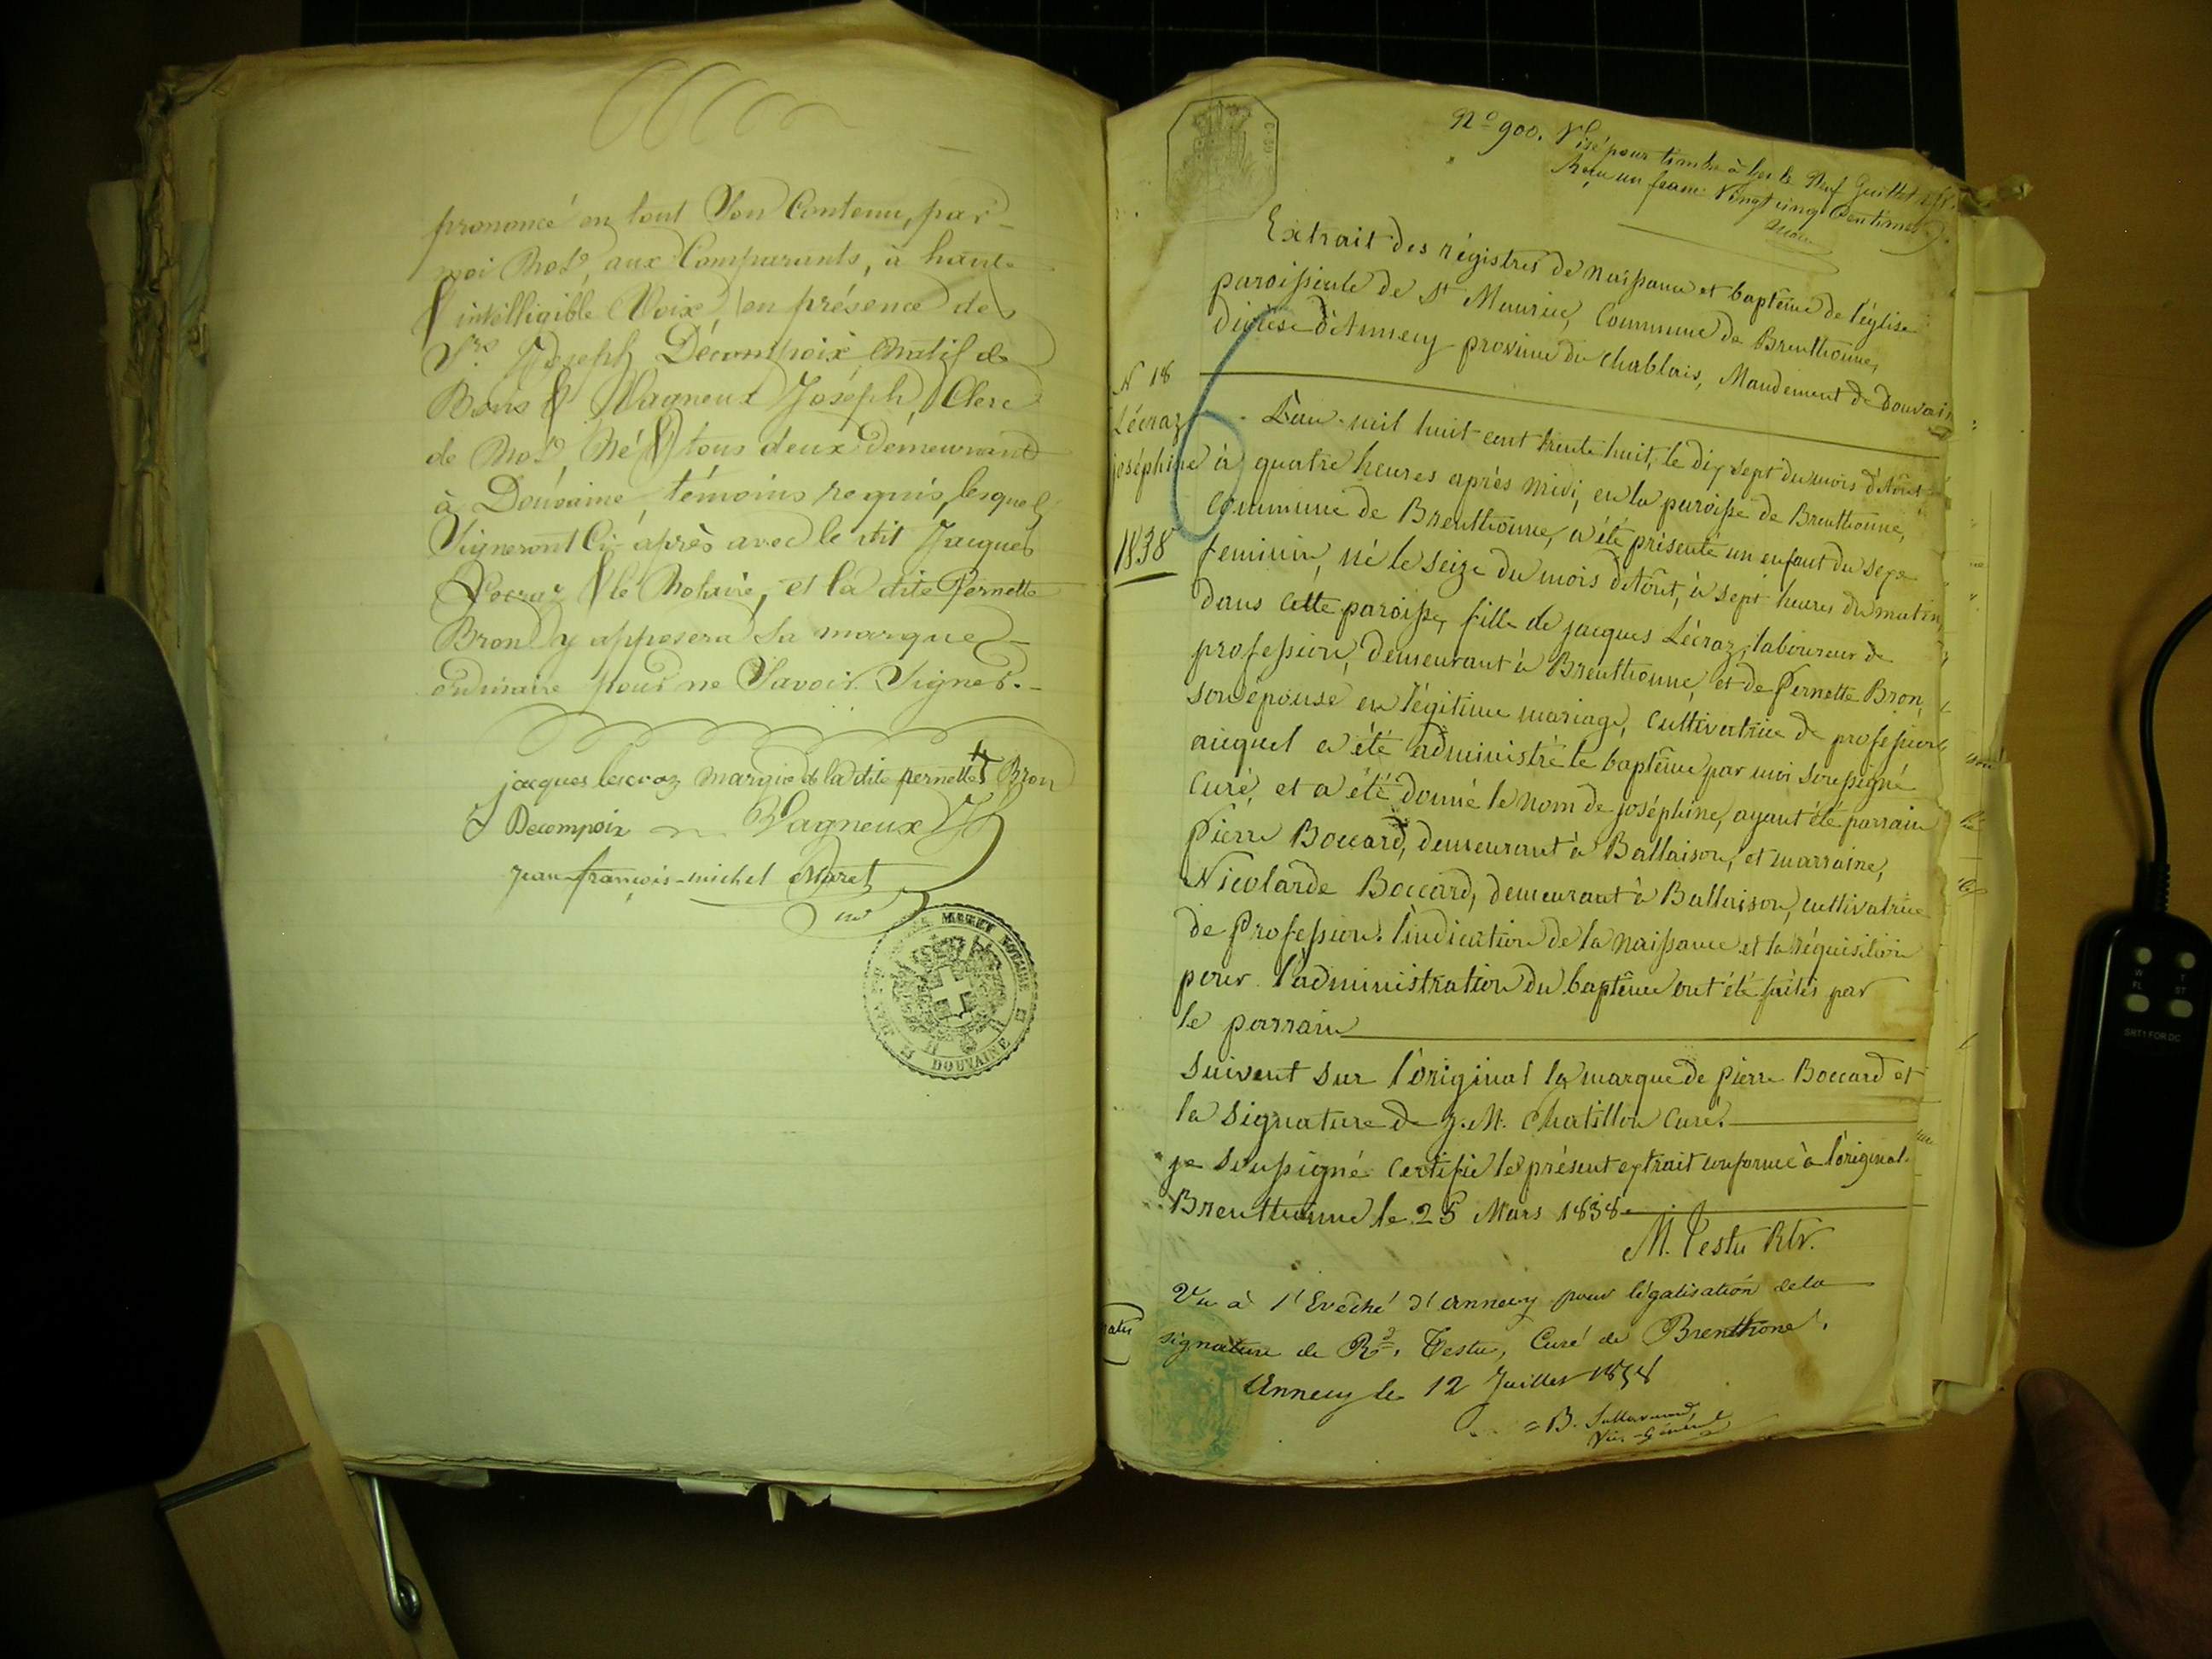 prononcé en tout son contenu, par
moi Not.e, aux Comparants, à haute
& intelligible Voix, en présence de
S.rs Joseph Décompoix, natif de
Bons & Vagneux Joséph, Clerc
de Not.e, né & tous deux demeurant
à Douvaine, témoins requis, lesquels
signeront ci-après avec le dit Jacques
Lecraz & le Notaire, et la dite Pernette
Bron y apposera sa marque
ordinaire pour ne savoir signer.
jacques lecraz marque de la dite pernette + Bron
Decompoix Vagneux J
Jean-françois-michel Moret
MORET NOTAIRE
DOUVAINE
N.o 900. Visé pour timbre à le Neuf Juillet
Reçu un franc Vingt cinq Centimes
Extrait des régistres de naissance et baptême de l'église
paroissiale de St Maurice, Commune de Brenthonne,
diocèse d'Annecy province du Chablais, Mandement de Douvain
N 18
Lécraz
joséphine
1838
L'an mil huit cent trente huit, le dix sept du mois d'Août
à quatre heures après midi, en la paroisse de Brenthonne,
Commune de Brenthonne, a été présenté un enfant du sexe
feminin, né le seize du mois d'Août, à sept heures du matin,
dans cette paroisse, fille de jacques Lécraz, laboureur de
profession, demeurant à Brenthonne, et de Pernette Bron,
son épouse en légitime mariage, cultivatrice de profession
auquel a été administré le baptême par moi soussigné
Curé, et a été donné le nom de joséphine, ayant été parrain
Pierre Boccard, demeurant à Ballaison, et marraine,
Nicolarde Boccard, demeurant à Ballaison, cultivatrice
de Profession. l'indication de la naissance et la réquisition
pour l'administration du baptême ont été faites par
le parrain
suivent sur l'original la marque de pierre Boccard et
la signature de J. M. Chatillon Curé.
je soussigné certifie le présent extrait conforme à l'original.
Brenthonne le 25 Mars 1858.
M. Testu Rtr.
Vu à l'Evêché d'annecy pour légalisation de la
signature de R.d Testu, Curé de Brenthone.
Annecy le 12 Juillet 1858
Vic. Général